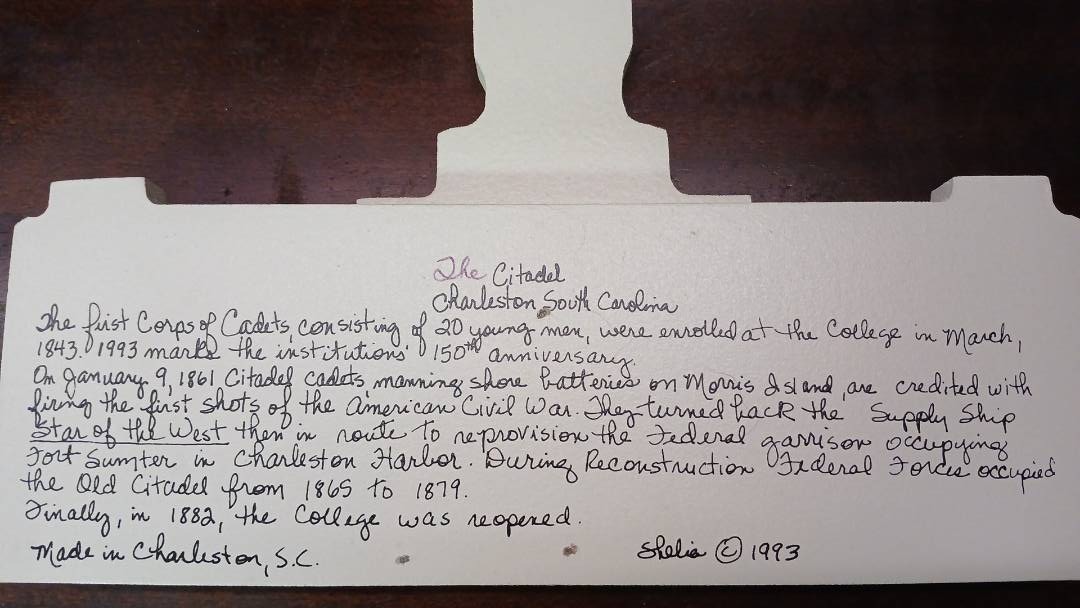 The Citadel
Charleston, South Carolina
The first Corps of Cadets, consisting of 20 young men, were enrolled at the College in March,
1843. 1993 marks the institutions' 150th anniversary.
On January 9, 1861 Citadel cadets, manning shore batteries on Morris Island, are credited with
firing the first shots of the American Civil War. They turned back the Supply Ship
Star of the West then in route to reprovision the Federal garrison occupying
Fort Sumter in Charleston Harbor. During Reconstruction Federal Forces occupied
the Old Citadel from 1865 to 1879.
Finally, in 1882, the College was reopened.
Made in Charleston, S.C.
Shelia © 1993